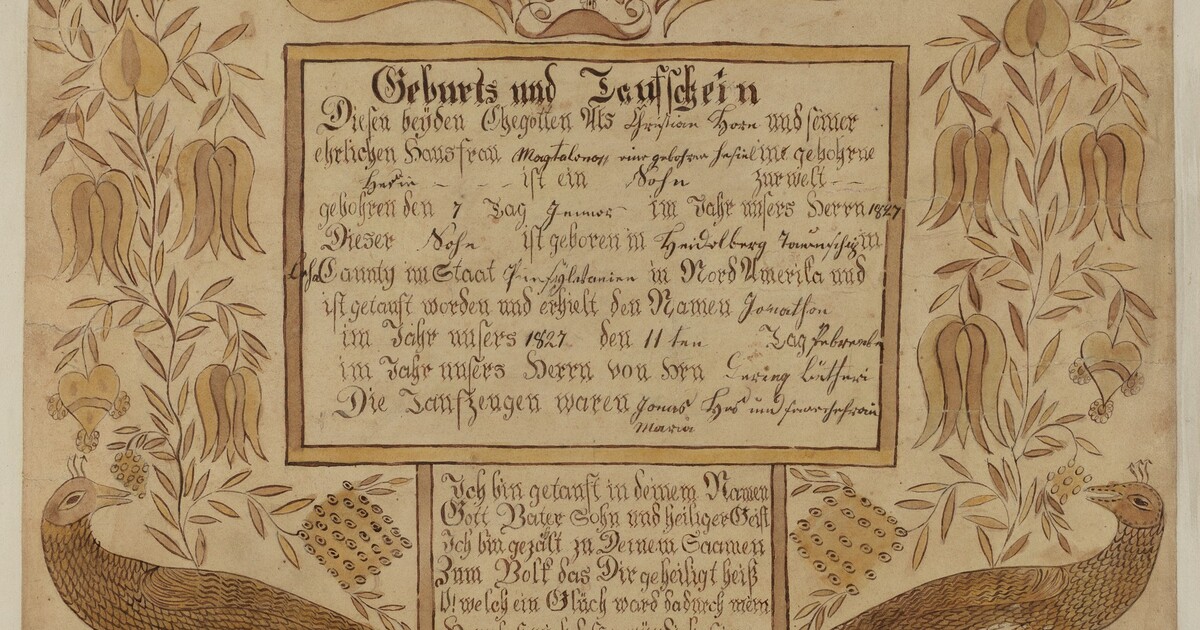 Geburts und Taufschein
Diesen beyden Ehegotten Als Christian Horn und seiner
ehrlichen Hausfrau Magtalena eine gebohrne gebohrne
ist ein Sohn zur welt
gebohren den 7 Tag Jennor im Jahr unsers Herrn 1827
Dieser Sohn ist geboren in Heidelberg Taunschip in
Lecha Caunty im Staat in Nord Amerika und
ist getauft worden und erhielt den Namen Jonathon
im Jahr unsers 1827 den 11 ten Tag
im Jahr unsers Herrn von Hrn
Die Taufzeugen waren Jonas Has und
Maria
Ich bin getauft in deinem Namen
Gott Vater Sohn und heiliger Geist
Ich bin gezält zu Deinem Saamen
Zum Volk das Dir geheiligt heiß
O! welch ein Glück ward dadurch mein